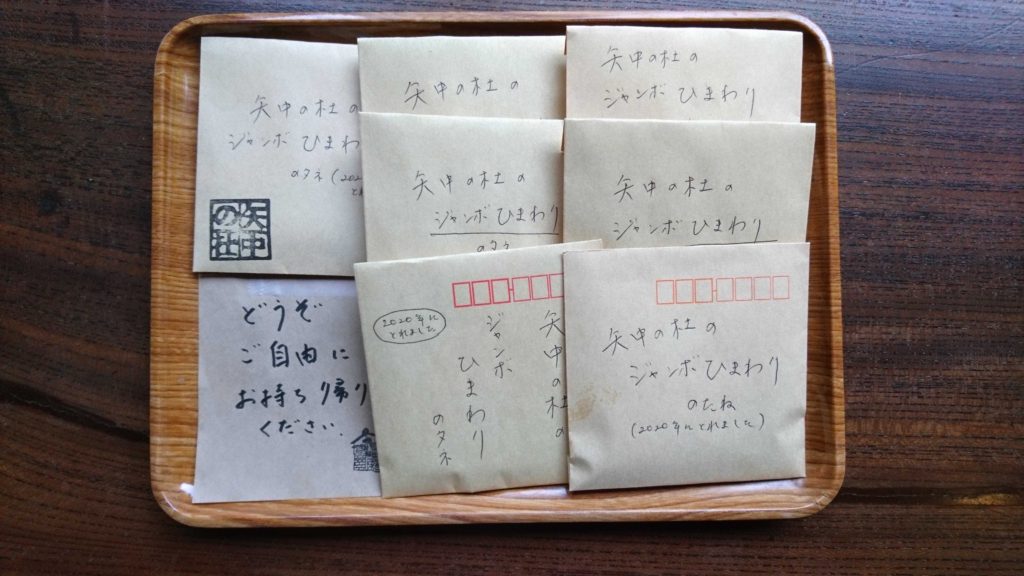 矢中の杜の
ジャンボ ひまわ
のタネ(202
と
矢中
の杜
矢中の杜の
矢中の杜の
ジャンボ ひまわり
矢中の杜の
ジャンボ ひまわり
のタネ
矢中の杜の
ジャンボ ひまわり
どうぞ
ご自由に
お持ち帰り
ください.
2020年に
とれました
矢中の杜の
ジャンボ
ひまわり
のタネ
矢中の杜の
ジャンボ ひまわり
のたね
(2020年にとれました)